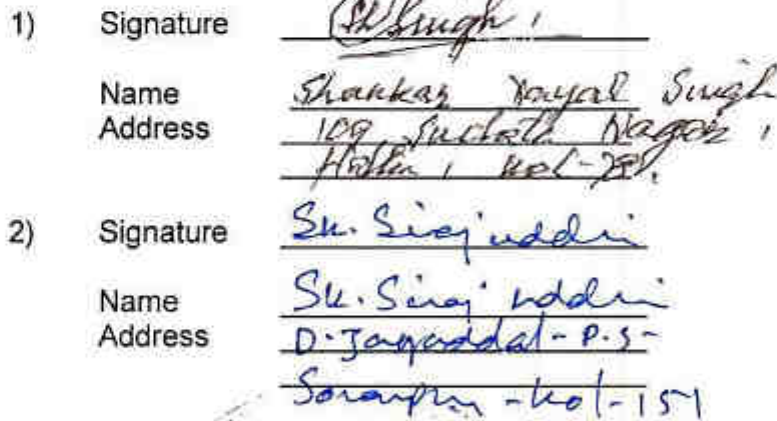 1) Signature SD Singh
Name Shankar Dayal Singh
Address 109, Nagar,
Kol-
2) Signature Sk. Sirajuddin
Name Sk. Sirajuddin
Address D. Jagaddal - P.S -
Sonarpur - Kol - 151